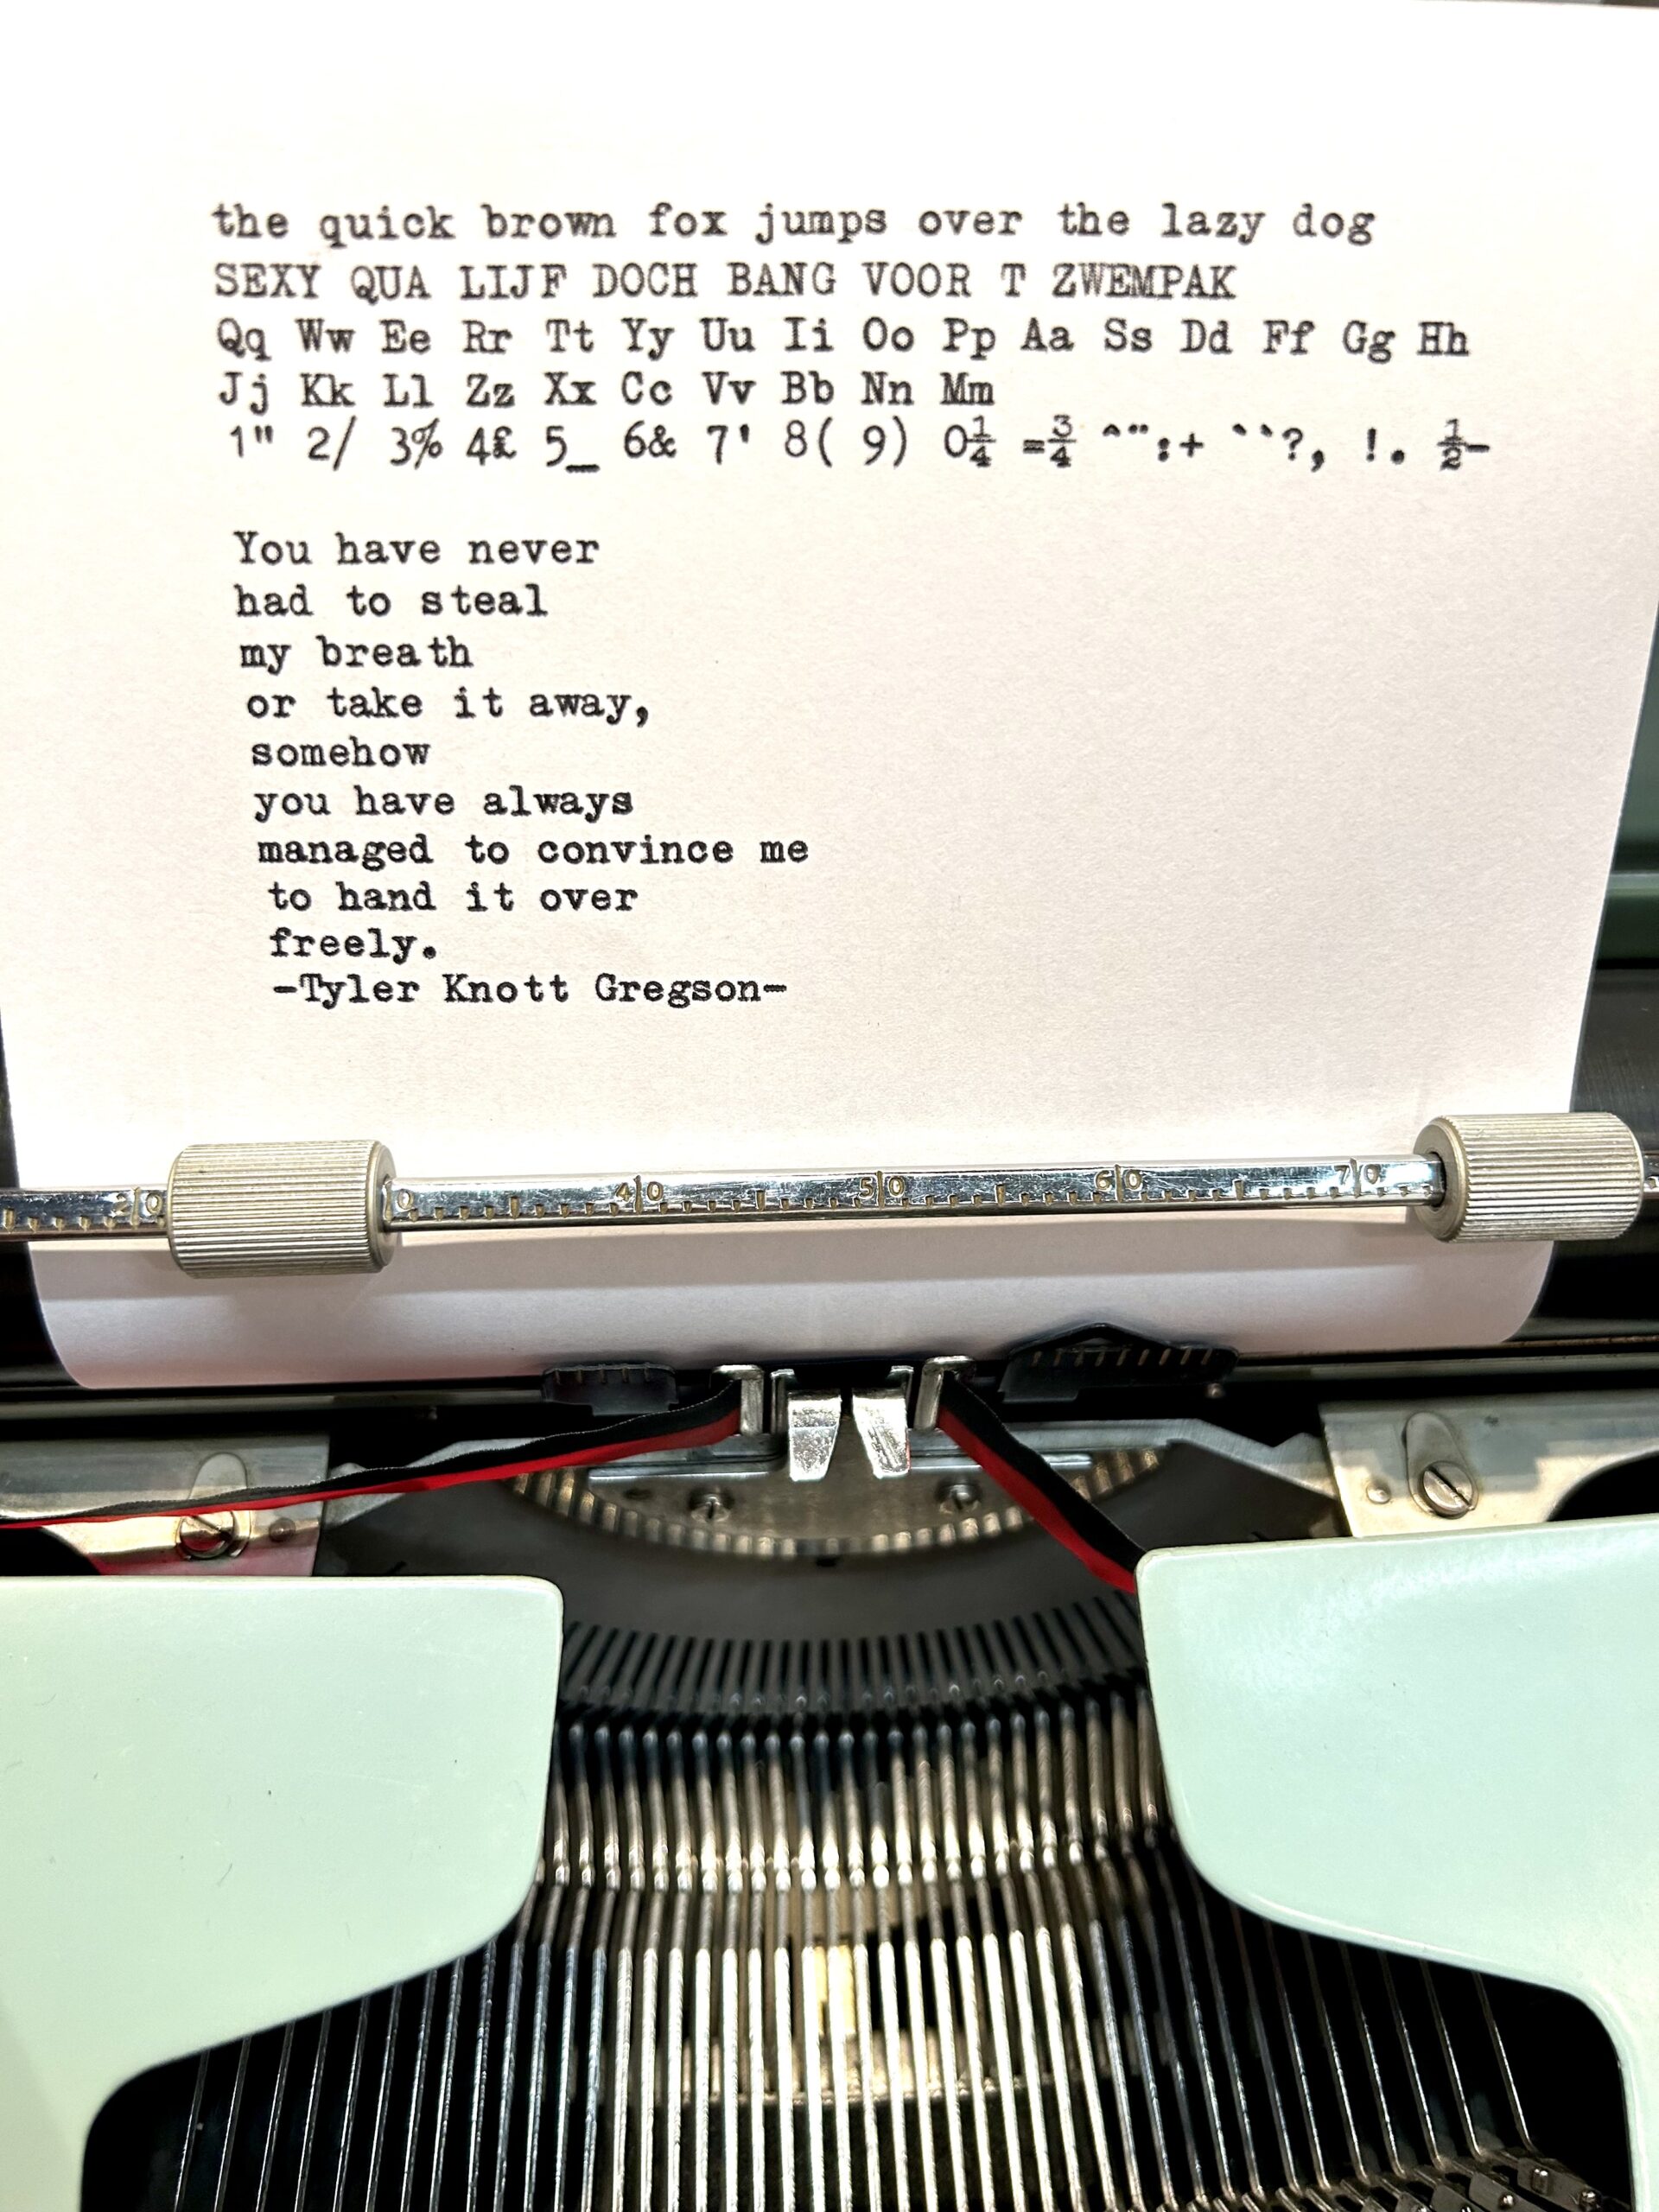 the quick brown fox jumps over the lazy dog
SEXY QUA LIJF DOCH BANG VOOR T ZWEMPAK
Qq Ww Ee Rr Tt Yy Uu Ii Oo Pp Aa Ss Dd Ff Gg Hh
Jj Kk Ll Zz Xx Cc Vv Bb Nn Mm
1" 2/ 3% 4£ 5_ 6& 7' 8( 9) 0¼ =¾ ^¨:+ ``?, !. ½-
You have never
had to steal
my breath
or take it away,
somehow
you have always
managed to convince me
to hand it over
freely.
-Tyler Knott Gregson-
20 40 50 60 70